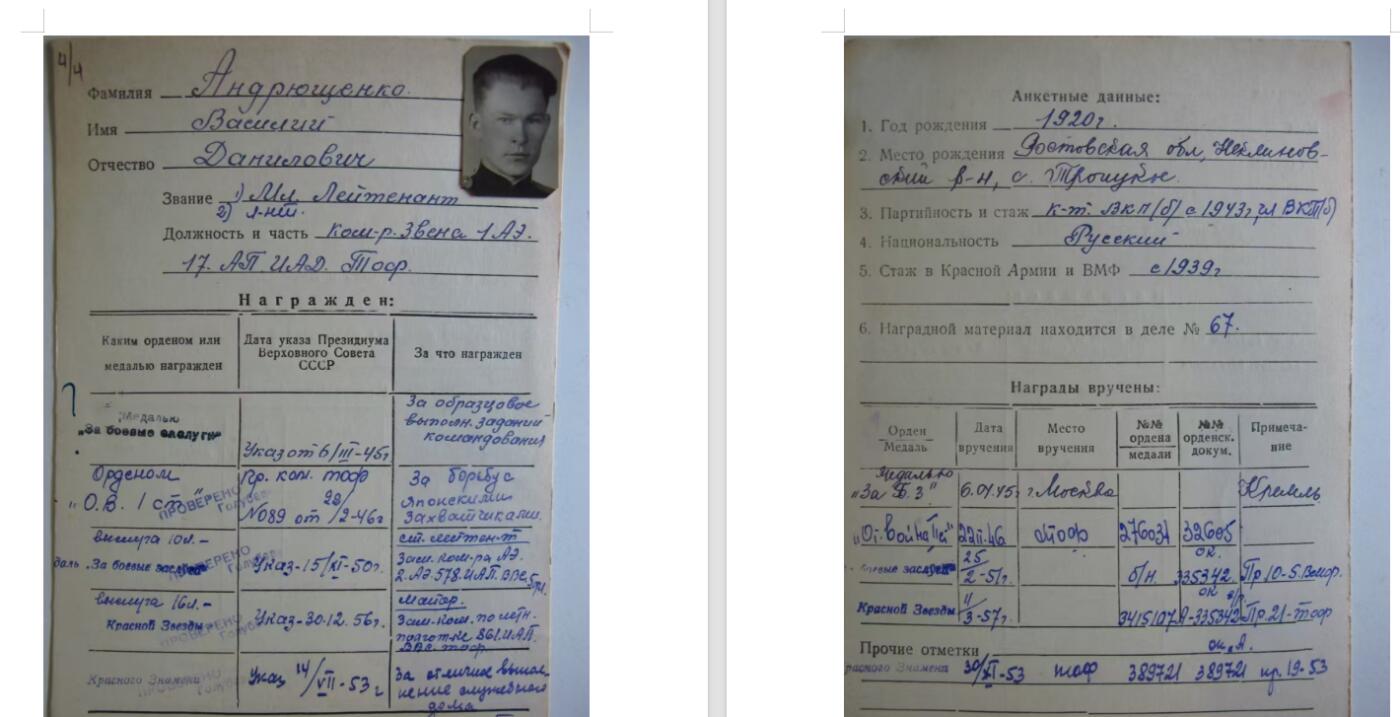 4/4
Фамилия Андрющенко
Имя Василий
Отчество Данилович
Звание 1) Мл. Лейтенант
2) л-нт.
Должность и часть Ком-р. Звена 1 АЭ.
17. АП. ИАД. Тоф.
Награжден:
Каким орденом или медалью награжден
Дата указа Президиума Верховного Совета СССР
За что награжден
?
Медалью
„За боевые заслуги“
Указ от 6/III-45г
За образцовое
выполн. заданий
командования
Орденом
„О.В. 1 ст“
Пр. ком. тоф
28/
№089 от /2-46г
За борьбу с
Японскими
Захватчиками.
ПРОВЕРЕНО
выслуга 10л.-
даль „За боевые заслуги
Указ-15/XI-50г.
ст. лейтен-т
Зам. Ком-ра АЭ.
2. АЭ. 578. ИАП. ВВС
ПРОВЕРЕНО
выслуга 16л.-
Красной Звезды
Указ-30.12.56г.
майор.
Зам. ком. по летн.
подготке 861. ИАП.
ВВС. тоф.
ПРОВЕРЕНО
Красного Знамени
Указ 14/VII-53г
За отличное выпол-
нение служебного
Анкетные данные:
1. Год рождения 1920г.
2. Место рождения Ростовская обл, Неклинов-
ский р-н, с. Троицкое.
3. Партийность и стаж к-т. ВКП(б) с 1943г, чл ВКП(б)
4. Национальность Русский
5. Стаж в Красной Армии и ВМФ с 1939г
6. Наградной материал находится в деле № 67.
Награды вручены:
Орден
Медаль
Дата вручения
Место вручения
№№ ордена медали
№№ орденск. докум.
Примеча-
ние
Медалью
„За Б.З“ 6.04.45г г. Москва Кремль
„От. Война IIст“ 22 II.46 тоф 276031 32605
боевые заслуги 25/2-51г. б/н. 335342. Пр. 10-5.
Красной Звезды 11/3-57г. 3415107 А-335342 Пр. 21-тоф
Прочие отметки
красного Знамени 30/XI-53 тоф 389721 389721 пр. 19-53